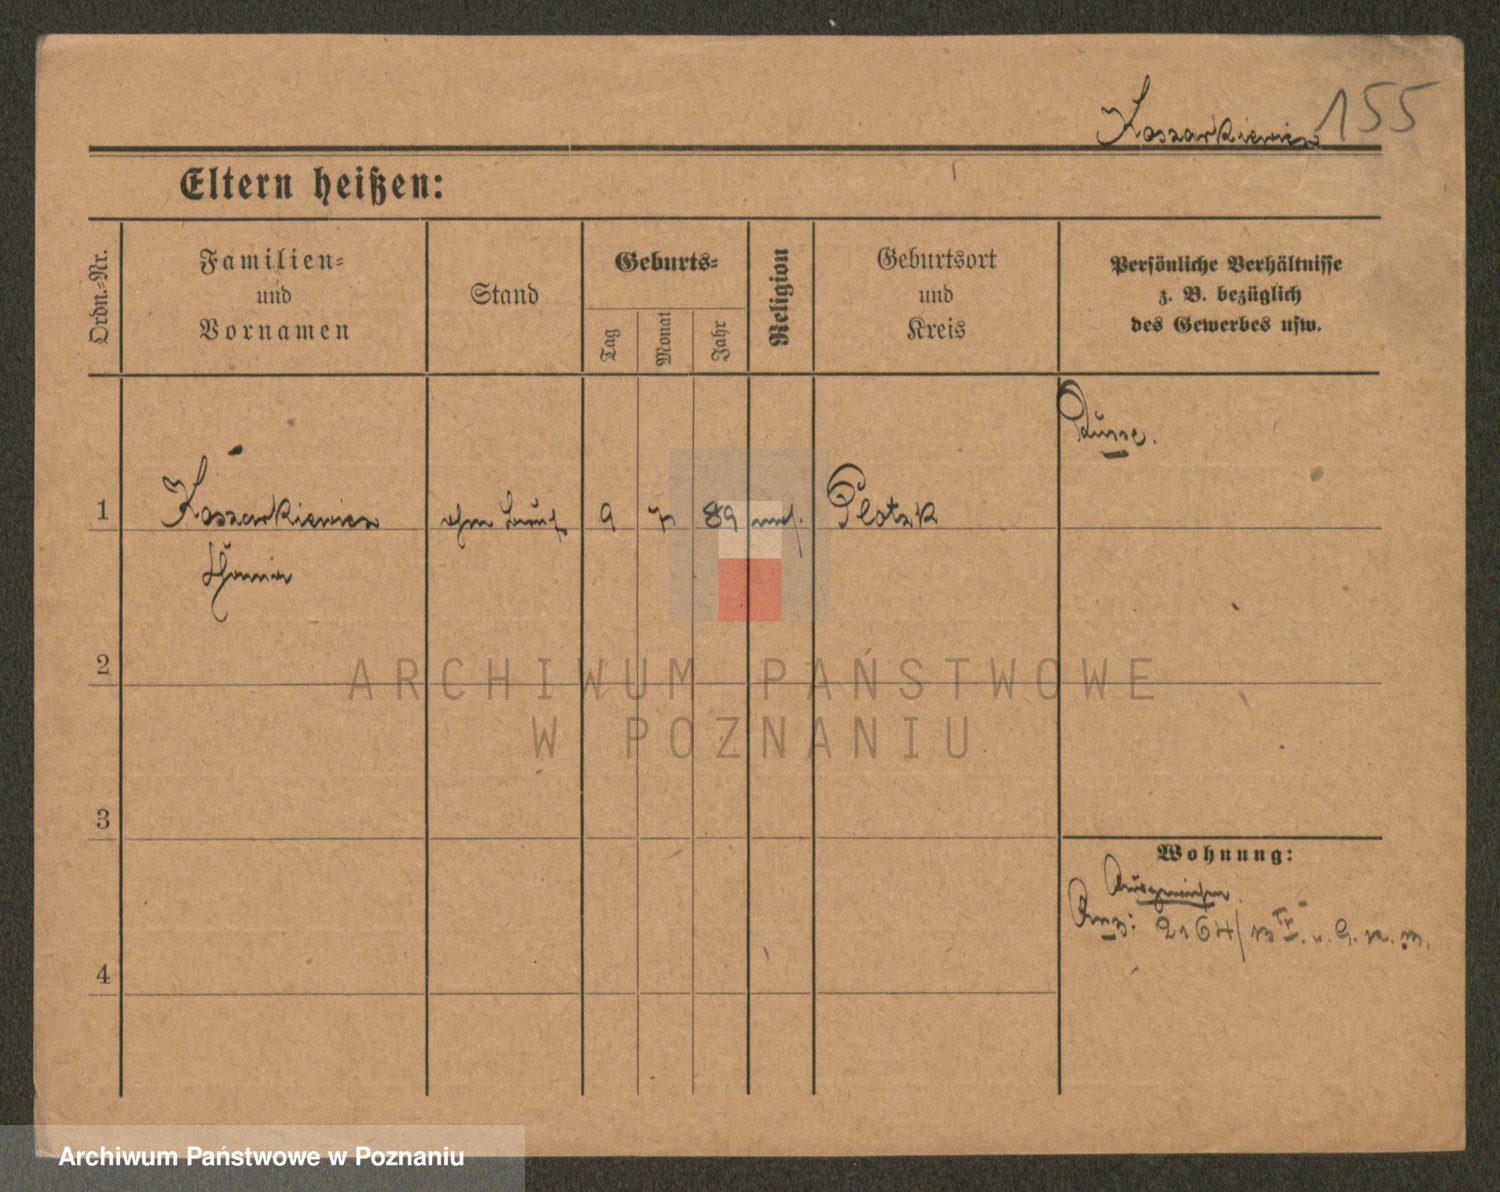 155
Koszarkiewicz
Eltern heißen:
Ordn.-Nr.
Familien-
und
Vornamen
Stand
Geburts-
Tag
Monat
Jahr
Religion
Geburtsort
und
Kreis
Persönliche Verhältnisse
z. B. bezüglich
des Gewerbes usw.
Russe.
1
Koszarkiewicz
ohne Beruf
9
7
89
Plotzk
2
3
4
Wohnung:
Ausgewiesen
2164/13
ARCHIWUM PAŃSTWOWE
W POZNANIU
Archiwum Państwowe w Poznaniu